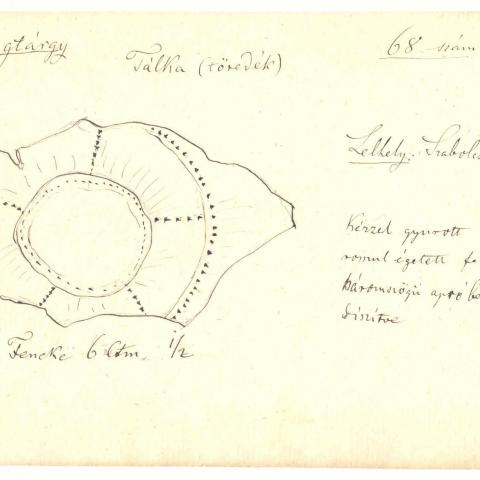 gtárgy
Tálka (töredék)
68. szám
Lelhely: Szabolcs
Kézzel gyurott
romul égetett fe
háromszögü apró be
diszitve
Feneke 6 Ctm. 1/2